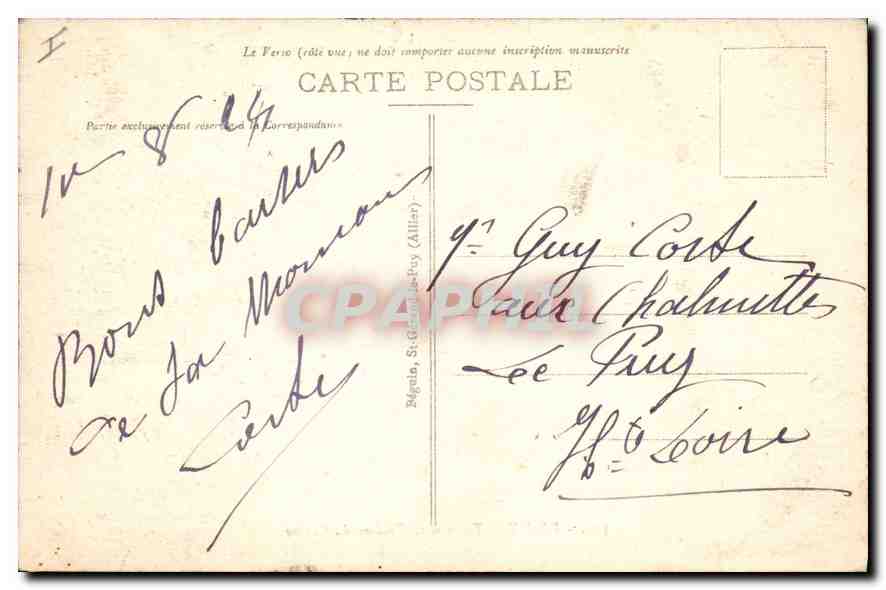 I
Le Verso (côté vue) ne doit comporter aucune inscription manuscrite
CARTE POSTALE
Partie exclusivement réservée à la Correspondance
8 14
Bons baisers
de ta Maman
Coste
Béguin, St-Gérand-le-Puy (Allier)
Guy Coste
aux Chalmettes
Le Puy
Hte Loire
CPAPHIL